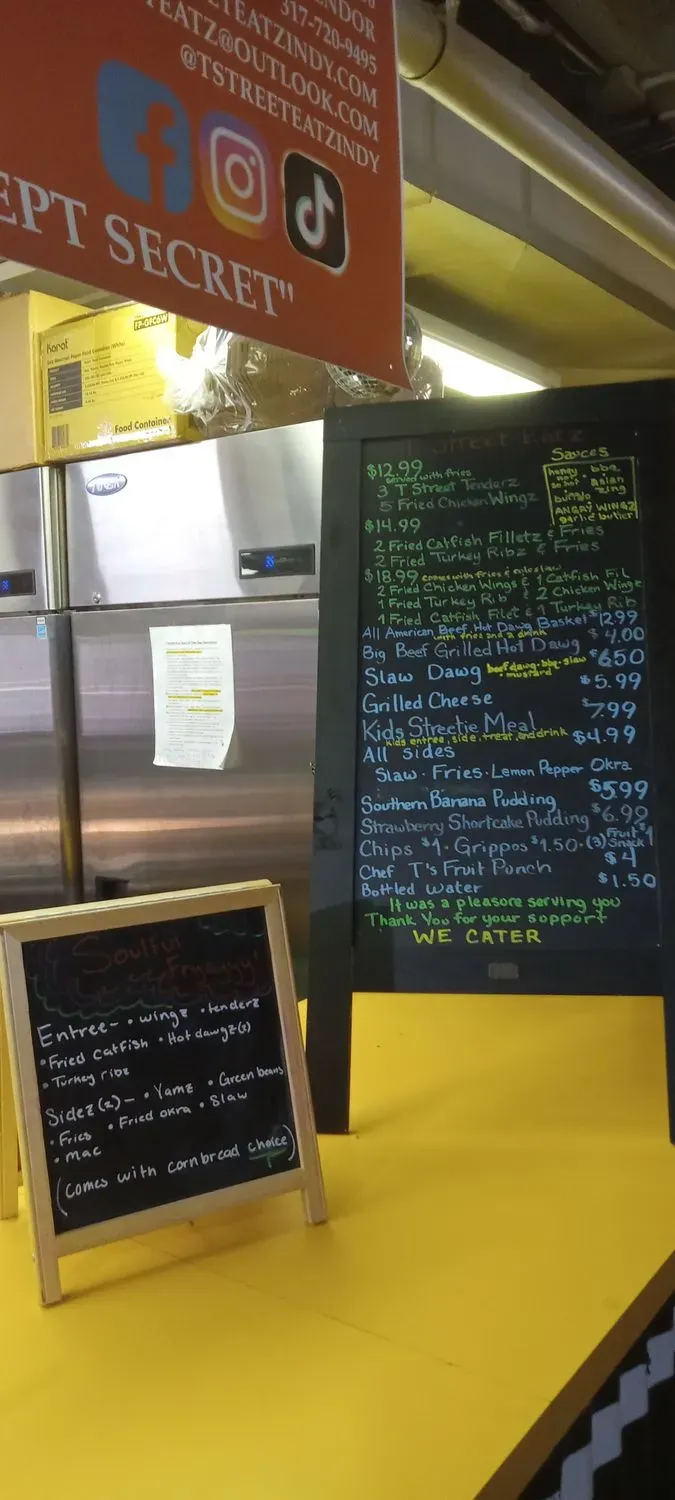 ENDOR
317-720-9495
EETEATZINDY.COM
TEATZ@OUTLOOK.COM
@TSTREETEATZINDY
EPT SECRET"
Karat
FP-GFC6W
Food Container
T Street Eatz
Sauces
honey hot
bbq
asian zing
buffalo
ANGRY WINGZ
garlic butter
$12.99
served with fries
3 T Street Tenderz
5 Fried Chicken Wingz
$14.99
2 Fried Catfish Filletz & Fries
2 Fried Turkey Ribz & Fries
$18.99 comes with fries & coleslaw
2 Fried Chicken Wings & 1 Catfish Fil
1 Fried Turkey Rib & 2 Chicken Wingz
1 Fried Catfish Filet & 1 Turkey Rib
All American Beef Hot Dawg Basket $12.99
with fries and a drink
Big Beef Grilled Hot Dawg $4.00
Slaw Dawg beef dawg·bbq·slaw $6.50
• mustard
Grilled Cheese $5.99
Kids Streetie Meal $7.99
kids entree, side, treat, and drink
All Sides $4.99
Slaw · Fries · Lemon Pepper Okra
Southern Banana Pudding $5.99
Strawberry Shortcake Pudding $6.99
Chips $1 · Grippos $1.50 · (3) Fruit Snack $1
Chef T's Fruit Punch $4
Bottled Water $1.50
It was a pleasure serving you
Thank You for your support
WE CATER
Soulful
Fryayyy!
Entree- • wingz • tenderz
• Fried Catfish • Hot dawgz(2)
• Turkey ribz
Sidez (2) - • Yamz • Green beans
• Fries • Fried okra • Slaw
• Mac
(comes with cornbread choice)